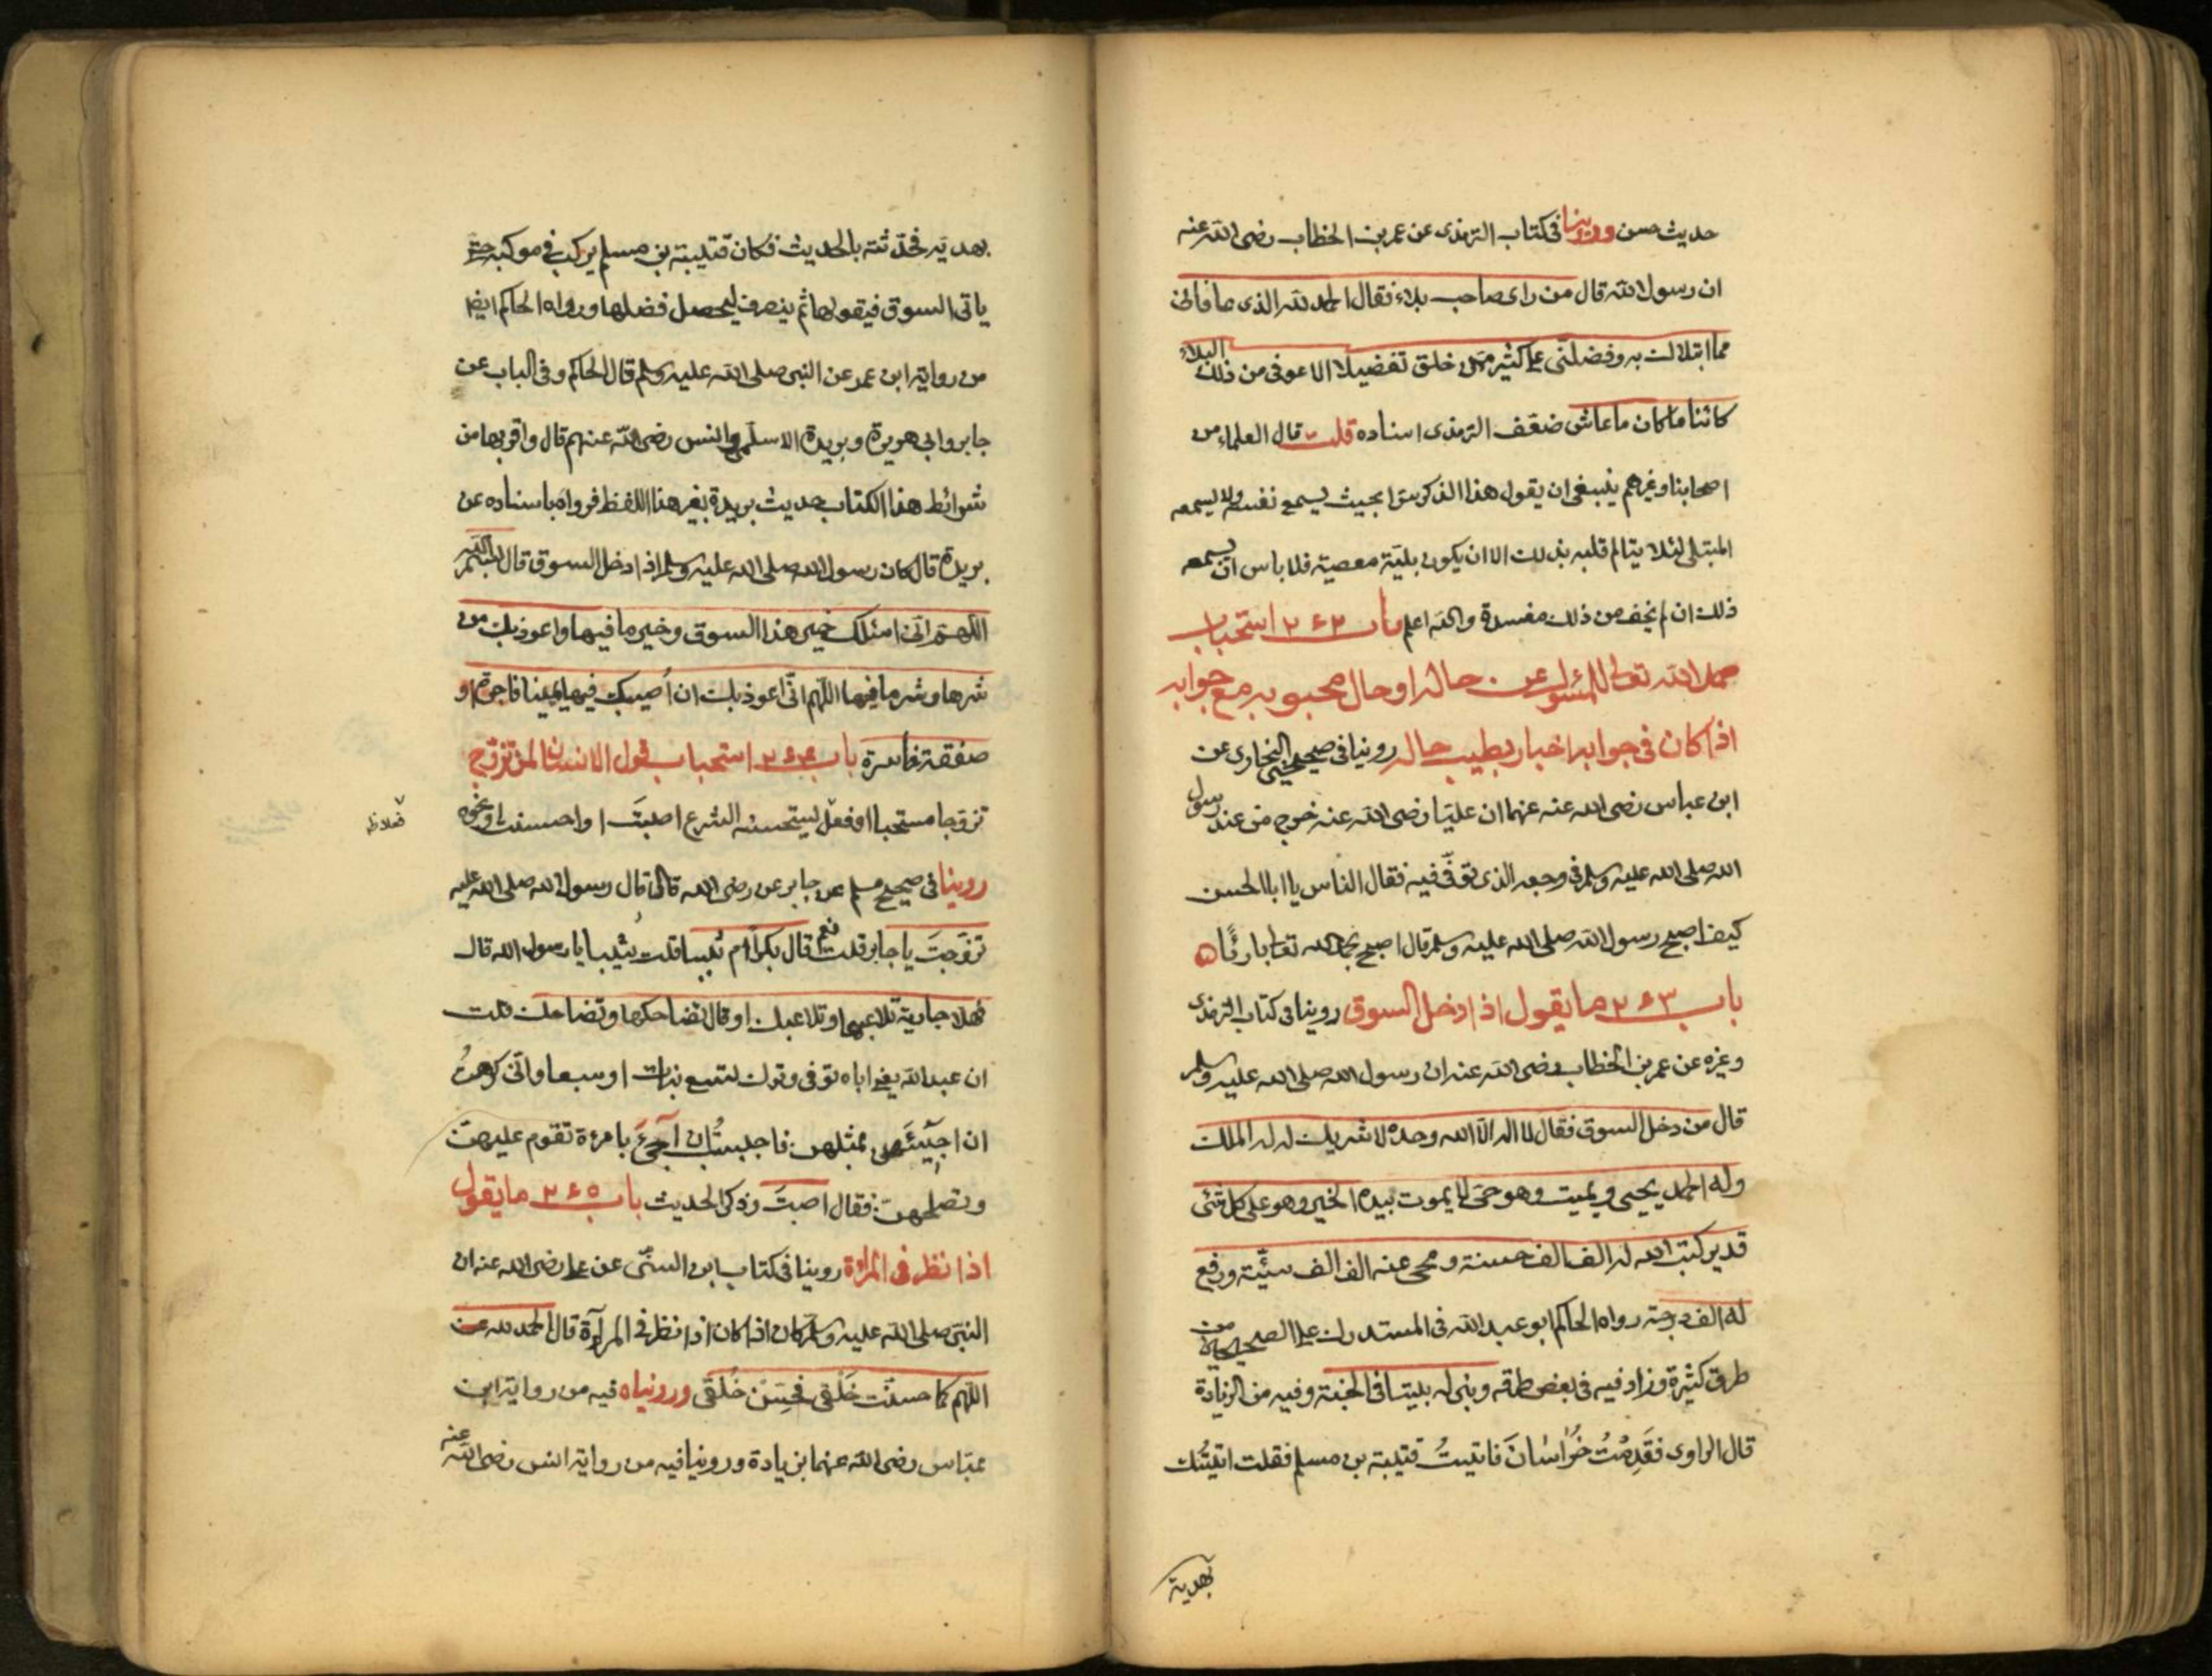 حديث حسن وروينا فى كتاب الترمذى عن عمر بن الخطاب رضى الله عنه
ان رسول الله قال من راى صاحب بلاء فقال الحمد لله الذى عافانى
مما ابتلاك به وفضلنى على كثير ممن خلق تفضيلا الا عوفى من ذلك البلاء
كائنا ما كان ما عاش ضعّف الترمذى اسناده قلت قال العلماء من
اصحابنا وغيرهم ينبغى ان يقول هذا الذكر سرا بحيث يسمع نفسه ولا يسمعه
المبتلى لئلا يتالم قلبه بذلك الا ان يكون بليّته معصية فلا باس ان يسمعه
ذلك ان لم يخف من ذلك مفسدة والله اعلم باب ٢٦٢ استحباب
حمد الله تعالى للمسئول عن حاله او حال محبوبه مع جوابه
اذا كان فى جوابه اخبار بطيب حاله روينا فى صحيح البخارى عن
ابن عباس رضى الله عنه عنهما ان عليّا رضى الله عنه خرج من عند رسول
الله صلى الله عليه وسلم فى وجعه الذى توفّى فيه فقال الناس يا ابا الحسن
كيف اصبح رسول الله صلى الله عليه وسلم قال اصبح بحمد الله تعا بارئًا
باب ٢٦٣ ما يقول اذا دخل السوق روينا فى كتاب الترمذى
وغيره عن عمر بن الخطاب رضى الله عنه ان رسول الله صلى الله عليه وسلم
قال من دخل السوق فقال لا اله الّا الله وحده لا شريك له له الملك
وله الحمد يحيى ويميت وهو حىّ لا يموت بيده الخير وهو على كل شئ
قدير كتب الله له الف الف حسنة ومحى عنه الف الف سيّئة ورفع
له الف درجة رواه الحاكم ابو عبد الله فى المستدرك على الصحيحين من
طرق كثيرة وزاد فيه فى بعض طرقه وبنى له بيتا فى الجنة وفيه من الزيادة
قال الراوى فقَدِمْتُ خُراسانَ فاتيتُ قتيبة بن مسلم فقلت اتيتُك
بهدية
بهديّة فحدّثته بالحديث فكان قتيبة بن مسلم يركب فى موكبه حتى
ياتى السوق فيقولها ثم ينصرف ليحصل فضلها ورواه الحاكم ايضا
من رواية ابن عمر عن النبى صلى الله عليه وسلم قال الحاكم وفى الباب عن
جابر وابى هريرة وبريدة الاسلمى وانس رضى الله عنهم قال واقربها من
شرائط هذا الكتاب حديث بريدة بغير هذا اللفظ فرواه باسناده عن
بريدة قال كان رسول الله صلى الله عليه وسلم اذا دخل السوق قال بسم الله
اللهمّ انى اسئلك خير هذا السوق وخير ما فيها واعوذ بك من
شرها وشر ما فيها اللّهم انّى اعوذ بك ان اُصيب فيها يمينا فاجرة او
صفقة خاسرة باب ٢٦٤ استحباب قول الانسان لمن تزوّج
تزوجا مستحبا او فعل يستحسنه الشرع اصبتَ او احسنت او نحوه
فعلا ظ
روينا فى صحيح مسلم عن جابر عن رضى الله قال قال رسول الله صلى الله عليه
تزوّجتَ يا جابر قلت نعم قال بكرًا ام ثيبا قلت ثيّبا يا رسول الله قال
فهلا جارية تلاعبها وتلاعبك او قال تضاحكها وتضاحك قلت
ان عبد الله يعنى اباه توفى وترك تسع بنات او سبعا وانّى كرهتُ
ان اجيئَهن بمثلهن فاحببتُ ان اَجئَ بامرءة تقوم عليهن
وتصلحهن فقال اصبتَ وذكر الحديث باب ٢٦٥ ما يقول
اذا نظر فى المرآة روينا فى كتاب ابن السنّى عن على رضى الله عنه ان
النبىّ صلى الله عليه وسلم كان اذا كان اذا نظر فى المرآة قال الحمد لله
اللّهم كما حسنْت خَلْقى فحسِّنْ خُلُقى وروينياه فيه من رواية ابن
عبّاس رضى الله عنهما بزيادة وروينا فيه من رواية انس رضى الله عنه